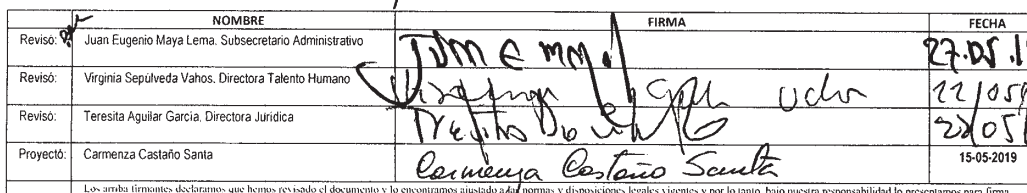 NOMBRE FIRMA FECHA
Revisó: Juan Eugenio Maya Lema. Subsecretario Administrativo 27.05.1
Revisó: Virginia Sepúlveda Vahos. Directora Talento Humano 22/05/
Revisó: Teresita Aguilar García. Directora Jurídica 05
Proyectó: Carmenza Castaño Santa Carmenza Castaño Santa 15-05-2019
Los arriba firmantes declaramos que hemos revisado el documento y lo encontramos ajustado a las normas y disposiciones legales vigentes y por lo tanto, bajo nuestra responsabilidad lo presentamos para firma